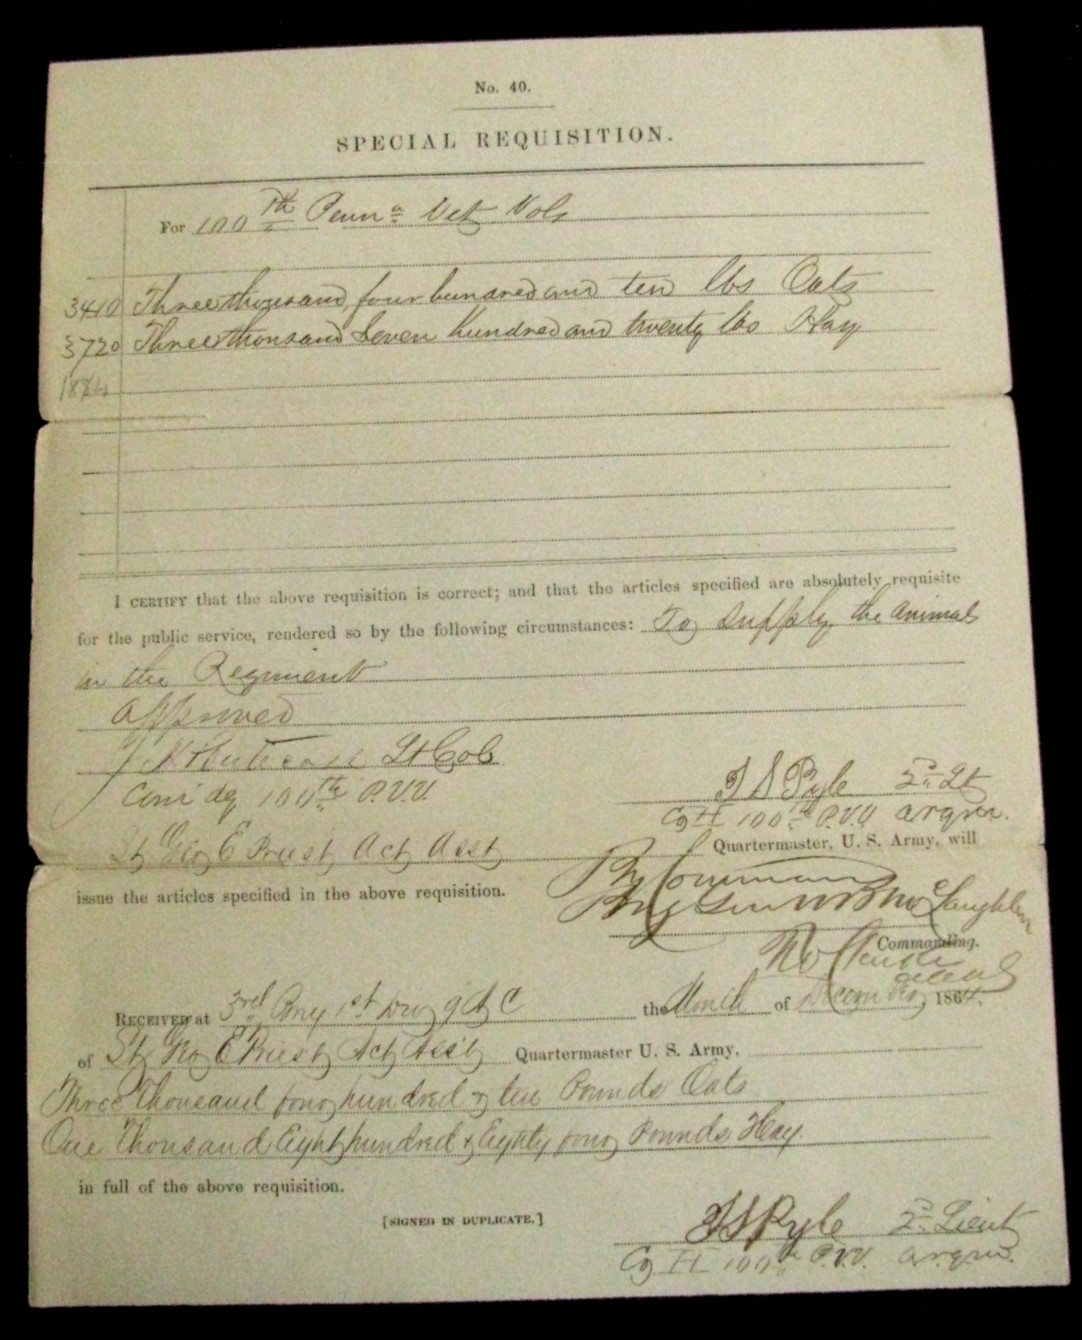 No. 40.
SPECIAL REQUISITION.
For 100th Penna Vet Vols
3410 Three thousand four hundred and ten lbs Oats
3720 Three thousand Seven hundred and twenty lbs Hay
1884
I CERTIFY that the above requisition is correct; and that the articles specified are absolutely requisite
for the public service, rendered so by the following circumstances: To supply the animals
in the Regiment
Approved
Lt Col
Com'dg 100th P.V.V.
T S Pyle 2nd Lt
Co H 100th P.V.V. a.r.q.m.
Lt Geo E Priest Act Asst Quartermaster, U. S. Army, will
issue the articles specified in the above requisition.
By Command
Brig Gen McLaughlen
Commanding.
RECEIVED at 3rd Brig 1st Div 9 A C the Month of December 1864.
of Lt Geo E Priest Act Ass't Quartermaster U. S. Army,
Three Thousand four hundred & ten Pounds Oats
One Thousand Eight hundred & Eighty four Pounds Hay.
in full of the above requisition.
[SIGNED IN DUPLICATE.]
T S Pyle 2nd Lieut
Co H 100th P.V.V. a.r.q.m.